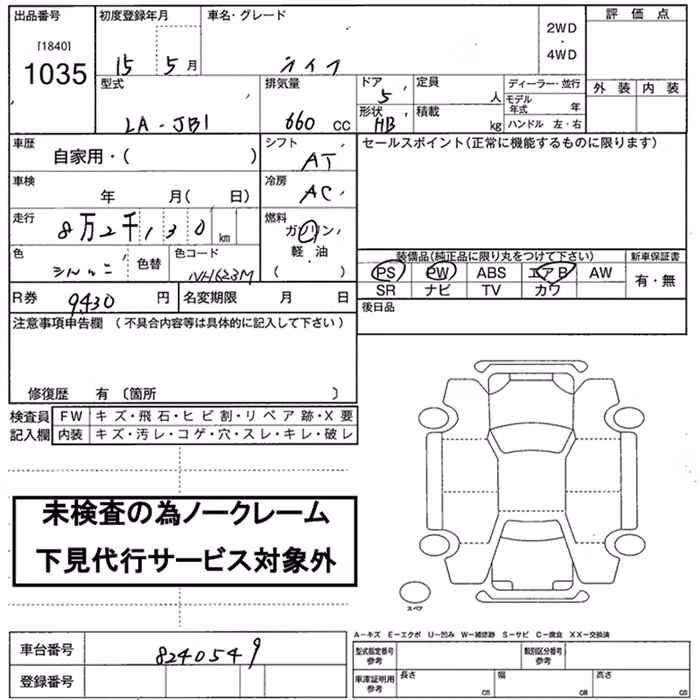 出品番号 初度登録年月 車名・グレード 2WD・4WD 評価点
[1840]
1035
15 5月 ライフ
型式 排気量 ドア 定員 ディーラー・並行 外装 内装
5 人 モデル年式 年
LA-JB1 660 CC 形状 HB 積載 kg ハンドル 左・右
車歴 自家用・( ) シフト AT セールスポイント(正常に機能するものに限ります)
車検 年 月( 日) 冷房 AC
走行 8万2千130km 燃料 ガソリン・軽・油 ( )
色 色替 色コード NH623M
装備品(純正品に限り丸をつけて下さい) 新車保証書
PS PW ABS エアB AW 有・無
SR ナビ TV カワ
R券 9430 円 名変期限 月 日 後日品
注意事項申告欄 (不具合内容等は具体的に記入して下さい)
修復歴 有 〔箇所 〕
検査員 FW キズ・飛石・ヒビ割・リペア跡・X要
記入欄 内装 キズ・汚レ・コゲ・穴・スレ・キレ・破レ
未検査の為ノークレーム
下見代行サービス対象外
スペア
A-キズ E-エクボ U-凹み W-補修跡 S-サビ C-腐食 XX-交換済
車台番号 8240549 型式指定番号 参考 類別区分番号 参考
登録番号 車庫証明用 参考 長さ cm 幅 cm 高さ cm